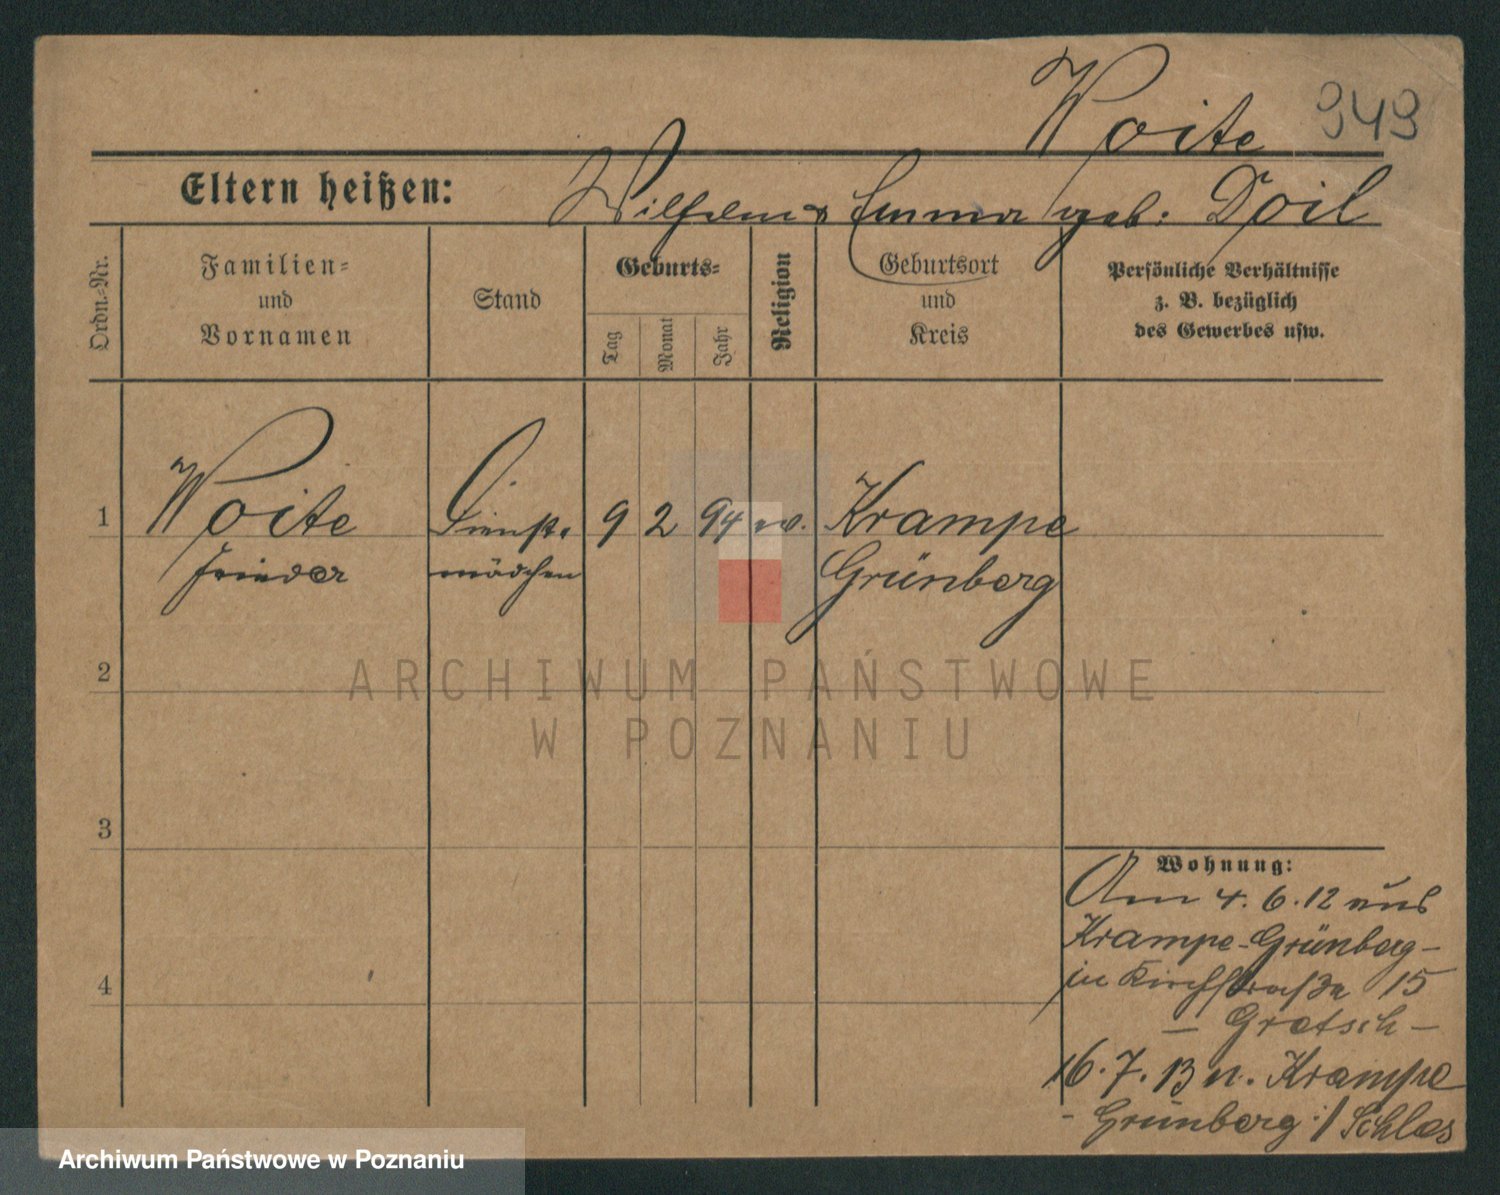 Woite 949
Eltern heißen: Wilhelm & Emma geb: Doil
Ordn.=Nr.
Familien=
und
Vornamen
Stand
Geburts=
Tag
Monat
Jahr
Religion
Geburtsort
und
Kreis
Persönliche Verhältnisse
z. B. bezüglich
des Gewerbes usw.
1 Woite Dienst= 9 2 94 ev. Krampe
mädchen Grünberg
2
3
4
Wohnung:
Am 4.6.12 aus
Krampe-Grünberg-
in Kirchstraße 15
– Gratsch –
16.7.13 n. Krampe
- Grünberg :/ Schles
ARCHIWUM PAŃSTWOWE
W POZNANIU
Archiwum Państwowe w Poznaniu